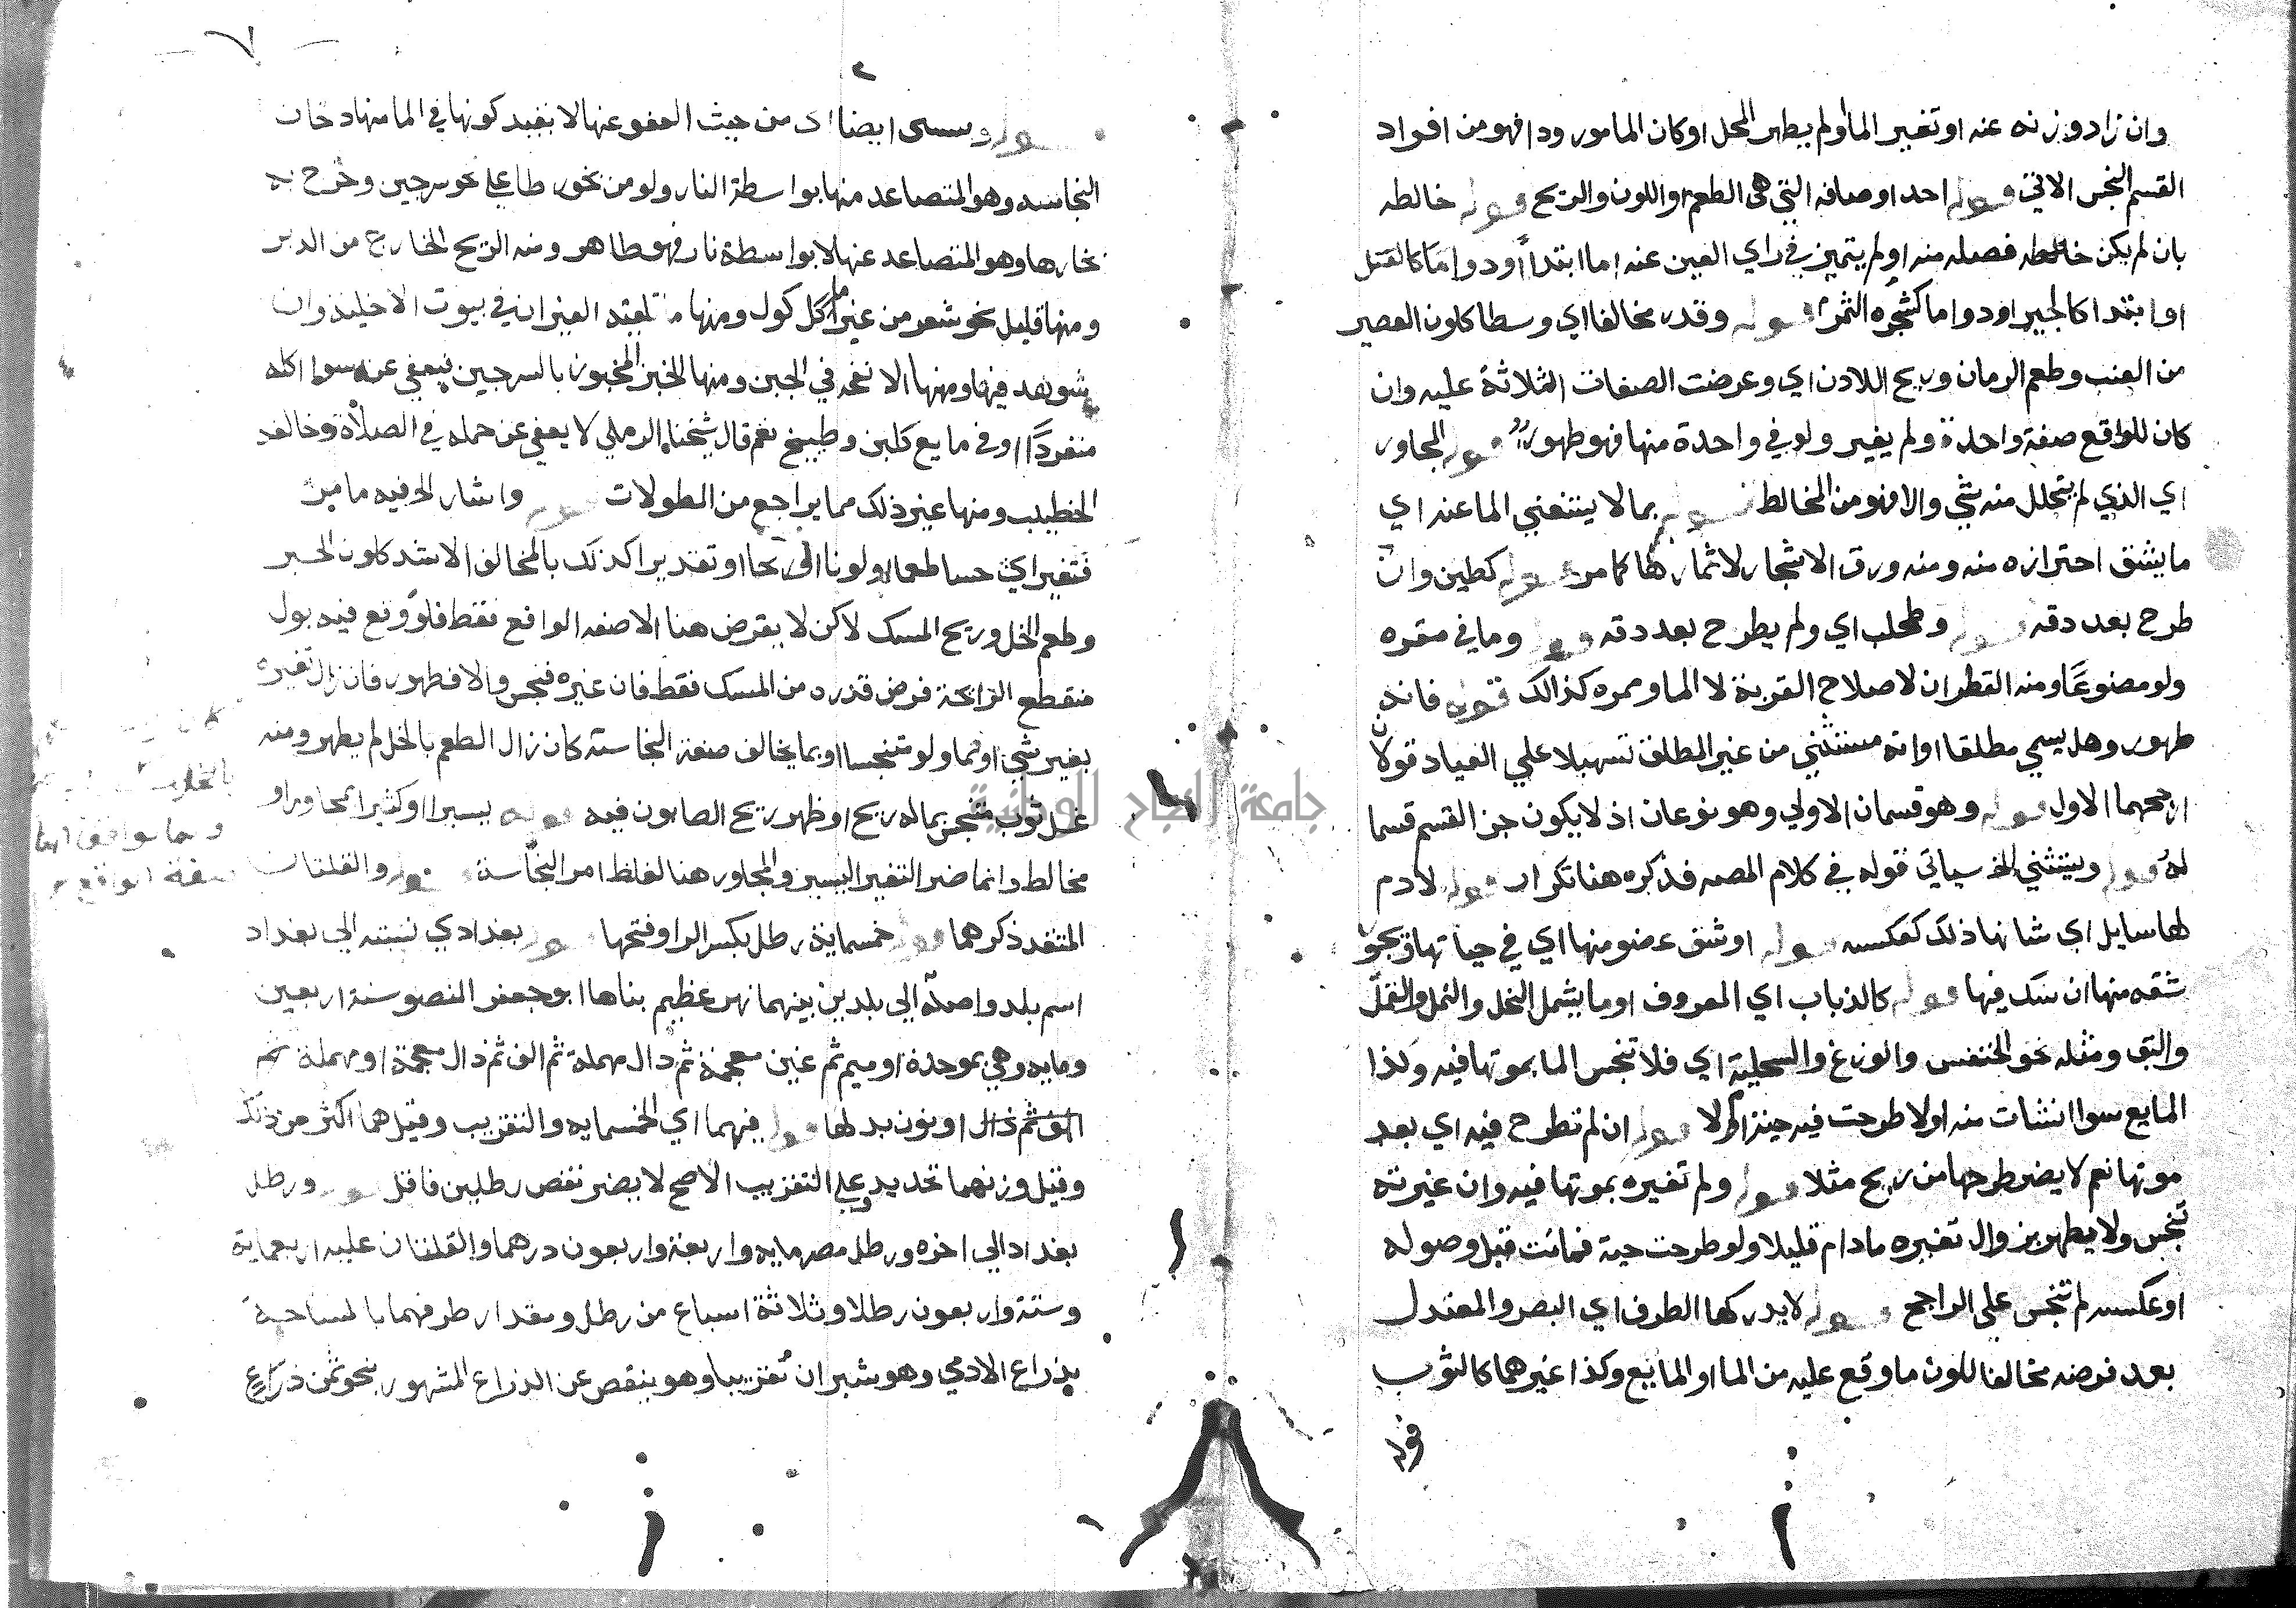 وان زاد وزنه عنه او تغير الما ولم يطهر المحل او كان الما مورودا فهو من افراد
القسم النجس الاتي قوله احد اوصافه التي هي الطعم او اللون والريح قوله خالطه
بان لم يكن خالطه فصله منه او لم يتميز في راي العين عنه اما ابتداً او دواما كالقتل
او ابتدا كالجير او دواما كشجره الثمر قوله وقدر مخالفا اي وسطا كلون العصير
من العنب وطعم الرمان وريح اللادن اي وعرضت الصفات الثلاثة عليه وان
كان للواقع صفة واحدة ولم يغير ولو في واحدة منها فهو طهور قوله المجاور
اي الذي لم يتحلل منه شي والا فهو من المخالط قوله بما لا يستغني الما عنه اي
ما يشق احترازه منه ومنه ورق الاشجار لا ثمارها كما مر قوله كطين وان
طرح بعد دقه قوله وطحلب اي ولم يطرح بعد دقه قوله وما في مقره
ولو مصنوعاً ومنه القطران لاصلاح القربة لا الما وممره كذالك قوله فانه
طهور وهل يسمي مطلقا او انه مستثني من غير المطلق تسهيلا علي العباد قولان
ارجحهما الاول قوله وهو قسمان الاولي وهو نوعان اذ لا يكون جز القسم قسما
له قوله ويستثني الخ سياتي قوله في كلام المصه فذكره هنا تكرار قوله لا دم
لها سايل اي شانها ذلك كعكسه قوله او شق عضو منها اي في حياتها ويجوز
شقه منها ان شك فيها قوله كالذباب اي المعروف او ما يشمل النحل والنمل والقمل
والبق ومثله نحو الخنفس والوزغ والسحلية اي فلا تنجس الما بموتها فيه وكذا
المايع سوا انشات منه اولا طرحت فيه حينئذ ام لا قوله ان لم تطرح فيه اي بعد
موتها نعم لا يضر طرحها من ريح مثلا قوله ولم تغيره بموتها فيه وان غيرته
تنجس ولا يطهر بزوال تغيره مادام قليلا ولو طرحت حية فماتت قبل وصوله
او عكسه لم تنجس علي الراجح قوله لا يدركها الطرف اي البصر والمعتدل
بعد فرضه مخالفا للون ما وقع عليه من الما او المايع وكذا غيرهما كالثوب
قوله
٧
٢
قوله ويستثنى ايضا اي من حيث العفو عنها لا بقيد كونها في الما منها دخان
النجاسه وهو المتصاعد منها بواسطة النار ولو من بخور طاعلي نحو سرجين وخرج به
بخارها وهو المتصاعد عنها لا بواسطة نار فهو طاهر ومنه الريح الخارج من الدبر
ومنها قليل نحو شعر من غير ماكول ومنها ما تلقيه الفيران في بيوت الاخليه وان
شوهد فيها ومنها الانفحه في الجبن ومنها الخبز المخبوز بالسرجين فيعفي عنه سوا اكله
منفرداً او في مايع كلبن وطبيخ نعم قال شيخنا الرملي لا يعفي عن حمله في الصلاة وخالفه
الخطيب ومنها غير ذلك مما يراجع من المطولات قوله واشار اليه فيه ما مر
فتغير اي حسا طعما او لونا او ريحا او تقديرا كذلك بالمخالف الاشد كلون الحبر
وطعم الخل وريح المسك لاكن لا يفرض هنا الا صفه الواقع فقط فلو وقع فيه بول
منقطع الرائحة فرض قدره من المسك فقط فان غيره فنجس والا فطهور فان زال تغيره
بغير شي او بما ولو متنجسا او بما يخالف صفة النجاسته كان زال الطعم بالخل لم يطهر ومنه
غسل ثوب متنجس بماله ريح او ظهر ريح الصابون فيه قوله يسيرا او كثيرا بمجاور او
مخالط وانما ضر التغير اليسير والمجاور هنا لغلظ امر النجاسة قوله والقلتان
المتقد ذكرهما قوله خمسماية رطل بكسر الرا وفتحها قوله بغدادي نسبته الي بغداد
اسم بلد واصله الي بلدين بينهما نهر عظيم بناها ابو جعفر المنصور سنة اربعين
ومايه وهي بموحدة او ميم ثم غين معجمة ثم دال مهملة ثم الف ثم دال معجمة او مهملة ثم
الف ثم ذال او نون بدلها قوله فيهما اي الخمسمايه والتقريب وقيل هما اكثر من ذلك
وقيل وزنهما تحديد وعلي التقريب الاصح لا يضر نقص رطلين فاقل قوله ورطل
بغداد الي اخره ورطل مصر مايه واربعة واربعون درهما والقلتان عليه اربعماية
وستة واربعون رطلا وثلاثة اسباع من رطل ومقدار ظرفهما بالمساحة
بذراع الادمي وهو شبران تقريبا وهو ينقص عن الذراع المشهور بنحو ثمن ذراع
جامعة النجاح الوطنية